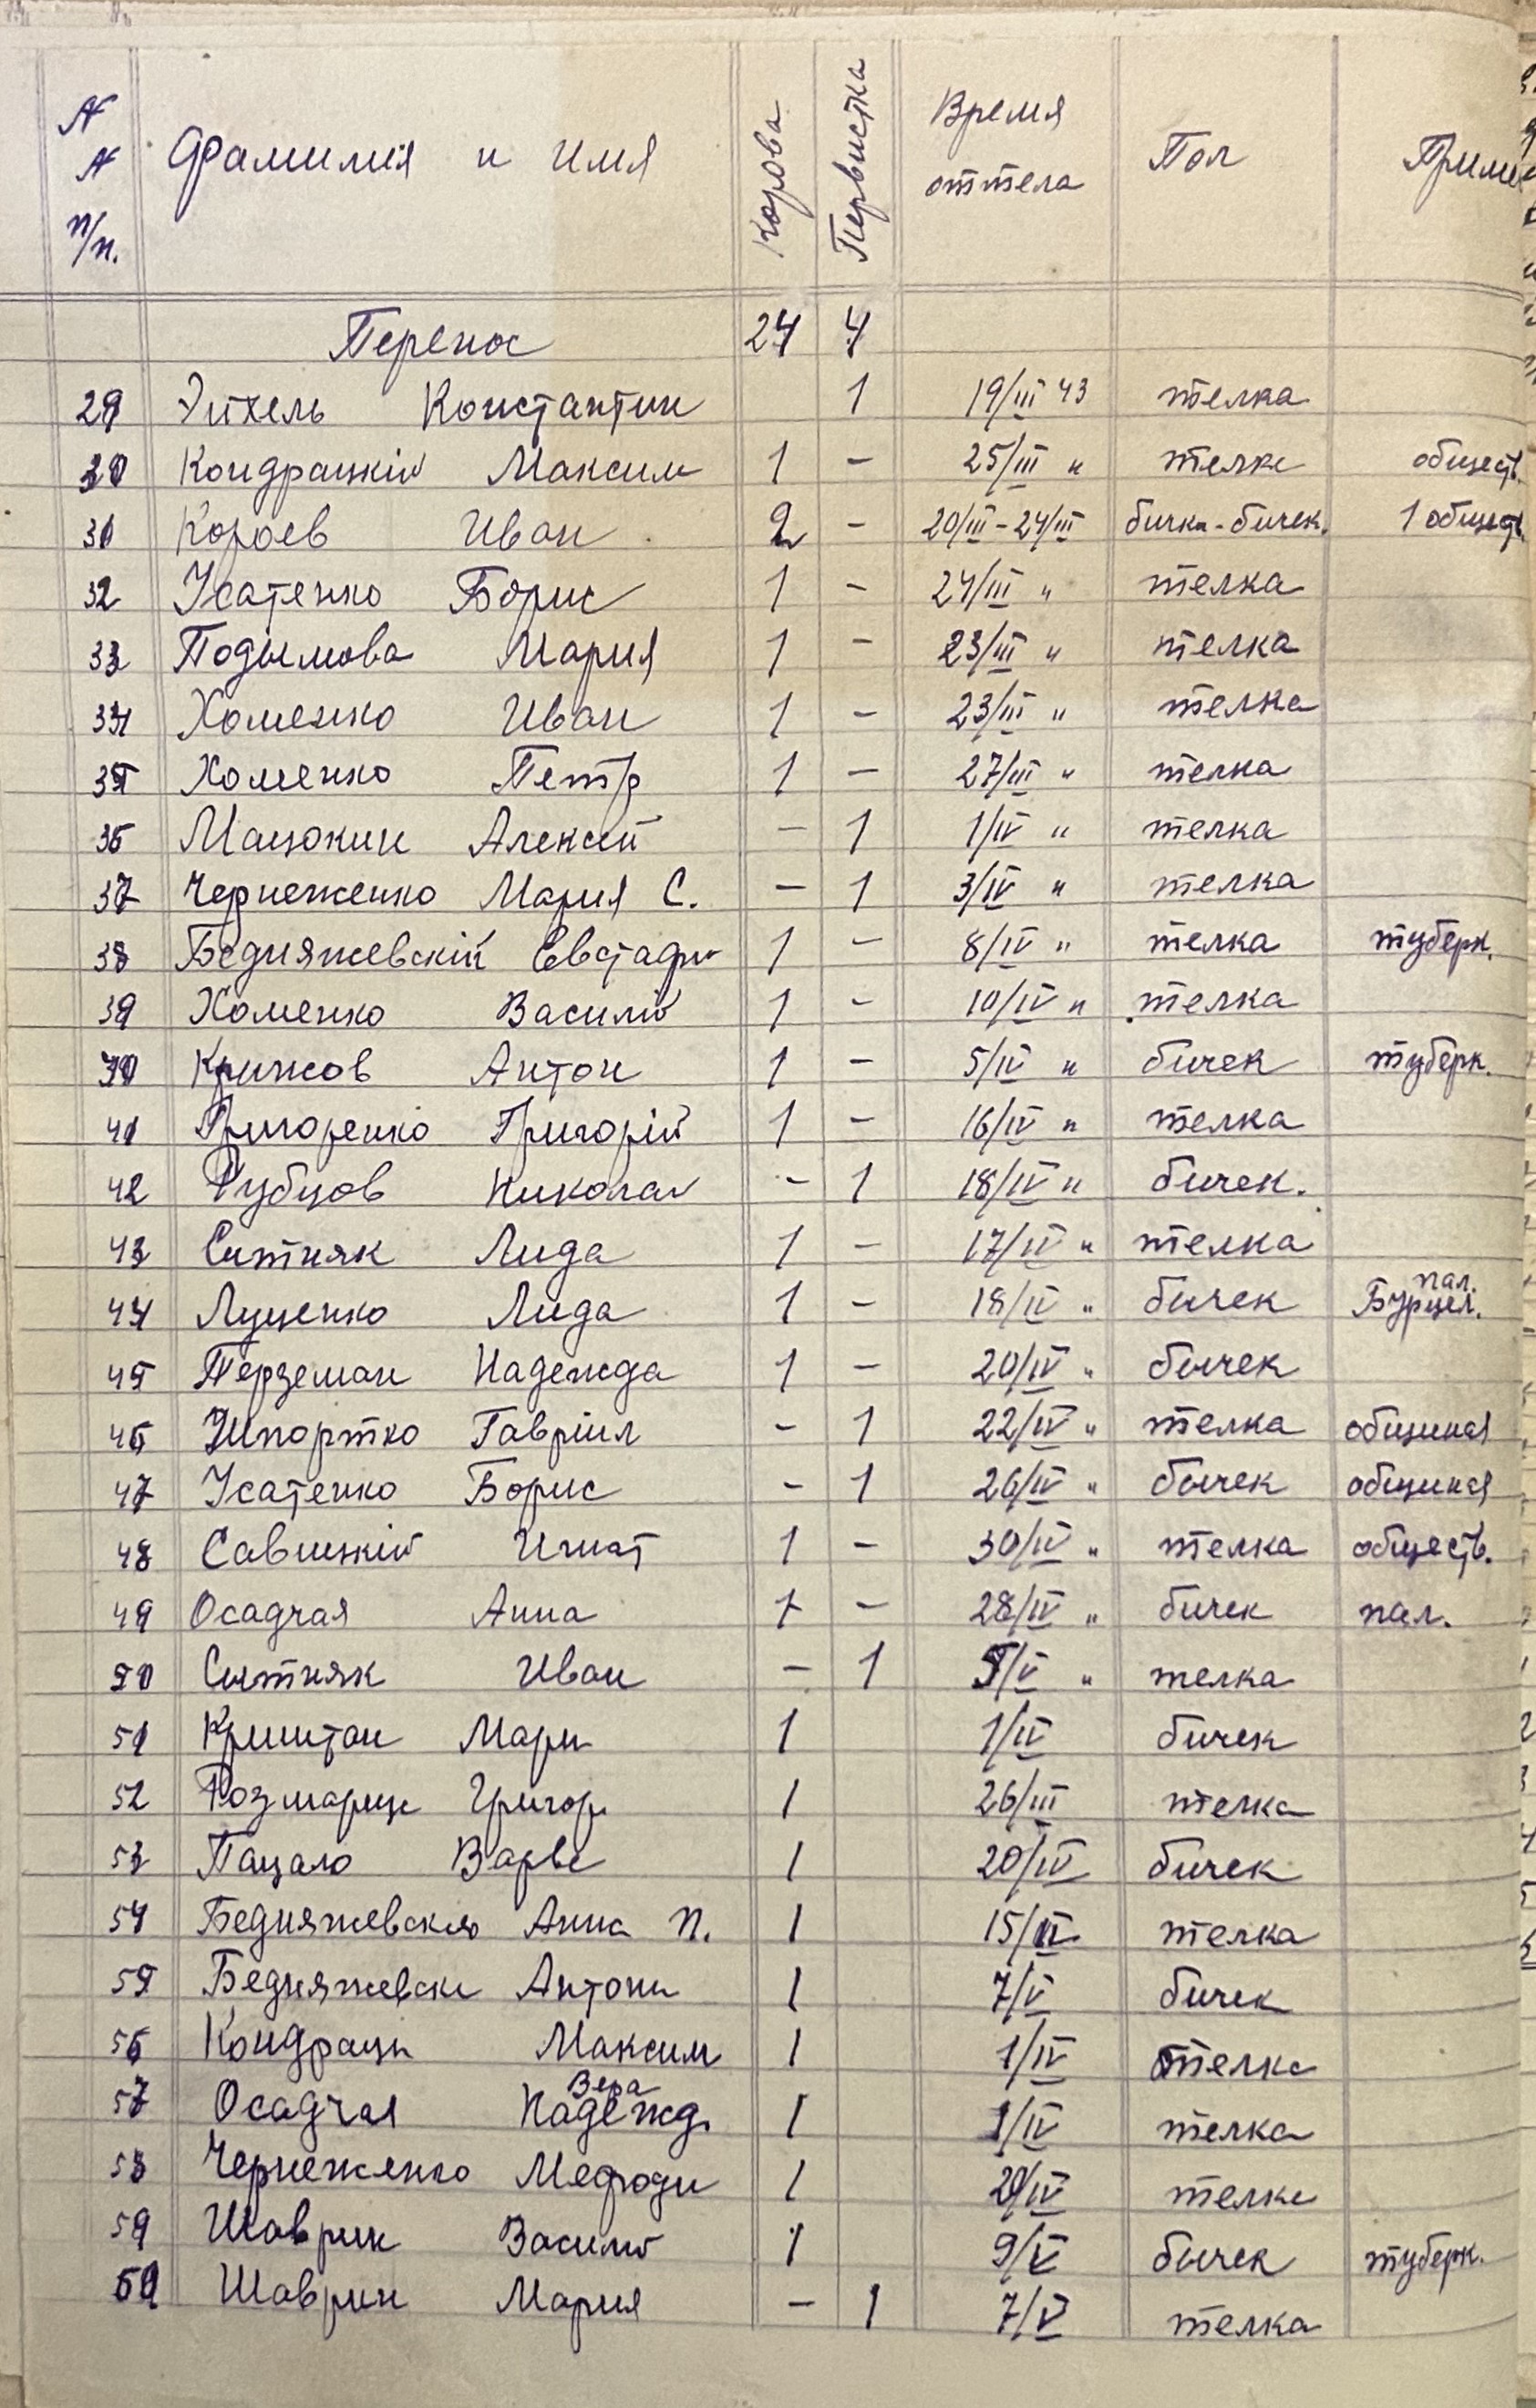 N N п/п. Фамилия и имя Корова Первистка Время оттела Пол Приме
Перенос 24 4
29 Эйхель Константин 1 19/III 43 телка
30 Кондрацкий Максим 1 – 25/III " телка обществ.
31 Короев Иван 2 – 20/III – 24/III бичка - бичек. 1 обществ.
32 Усатенко Борис 1 – 24/III " телка
33 Подымова Мария 1 – 23/III " телка
34 Хоменко Иван 1 – 23/III " телка
35 Хоменко Петр 1 – 27/III " телка
36 Мацокин Алексей – 1 1/IV " телка
37 Чернеженко Мария С. – 1 3/IV " телка
38 Бедняжевскій Евстафи 1 – 8/IV " телка туберк.
39 Хоменко Василий 1 – 10/IV " телка
40 Крижов Антон 1 – 5/IV " бичек туберк.
41 Григоренко Григорій 1 – 16/IV " телка
42 Рубцов Николай – 1 18/IV " бичек.
43 Ситняк Лида 1 – 17/IV " телка
44 Луценко Лида 1 – 18/IV " бичек пал. Бурцел.
45 Перземан Надежда 1 – 20/IV " бычек
46 Шпортко Гавріил – 1 22/IV " телка общиная
47 Усатенко Борис – 1 26/IV " бычек общиная
48 Савицкий Игнат 1 – 30/IV " телка обществ.
49 Осадчая Анна 1 – 28/IV " бичек пал.
50 Сытняк Иван – 1 5/V " телка
51 Криштан Мари 1 1/IV бичек
52 Розмариц Григор. 1 26/III телка
53 Пацало Варва 1 20/IV бичек
54 Бедняжевская Анна П. 1 15/IV телка
55 Бедняжевск Антони 1 7/V бичек
56 Кондрацк Максим 1 1/IV телка
57 Осадчая Вера Надежд. 1 1/IV телка
58 Чернеженко Мефоди 1 20/IV телка
59 Шаврин Василий 1 9/V бычек туберк.
60 Шаврин Мария – 1 7/V телка